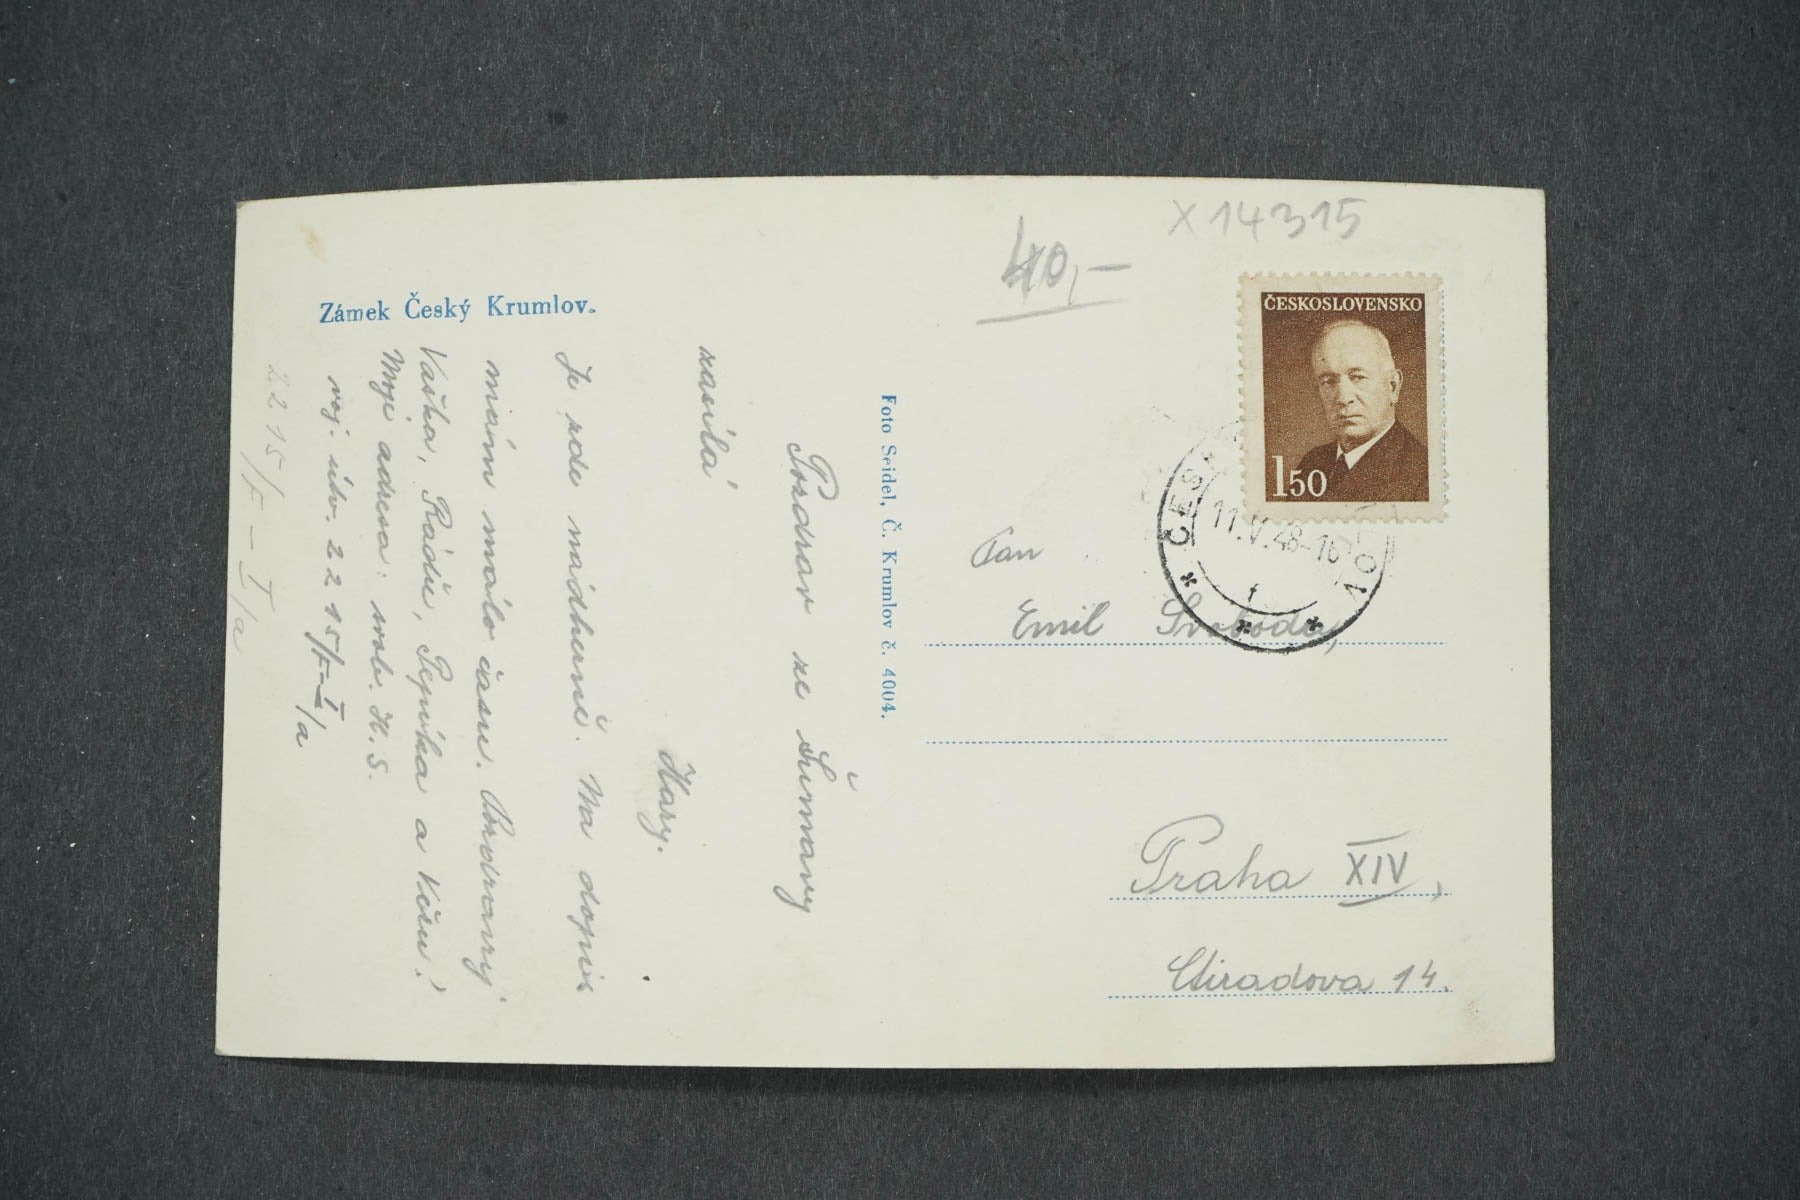 Zámek Český Krumlov.
Pozdrav ze Šumavy
zasílá
Hary.
Je zde nádherně. Na dopis
mám málo času. Pozdravuj
Vaška, Rádu, Pepíka a Kosu!
Moje adresa: svob. H. S.
voj. útv. 2215/F-I/a
2215/F-I/a
Foto Seidel, Č. Krumlov č. 4004.
40,-
X14315
ČESKOSLOVENSKO
150
11.V.48-16
1
Pan
Emil Svoboda,
Praha XIV,
14.